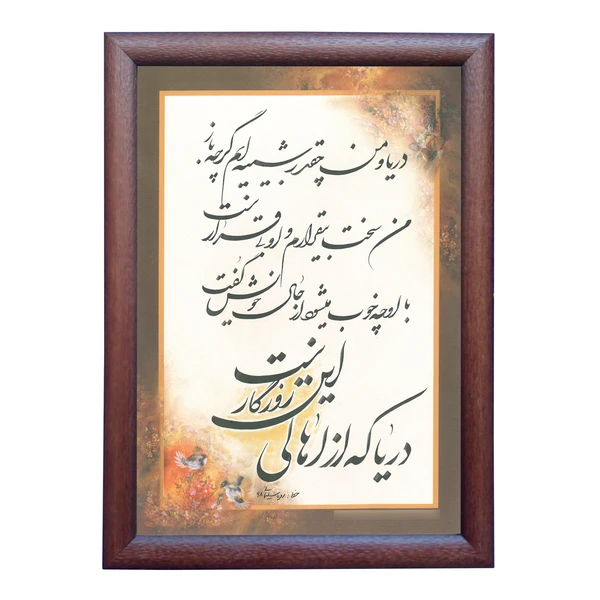 دریا و من چقدر شبیه‌ایم گرچه باز
من سخت بیقرارم و او بی قرار نیست
با او چه خوب میشود از حال خویش گفت
دریا که از اهالی این روزگار نیست
خط :
۹۸